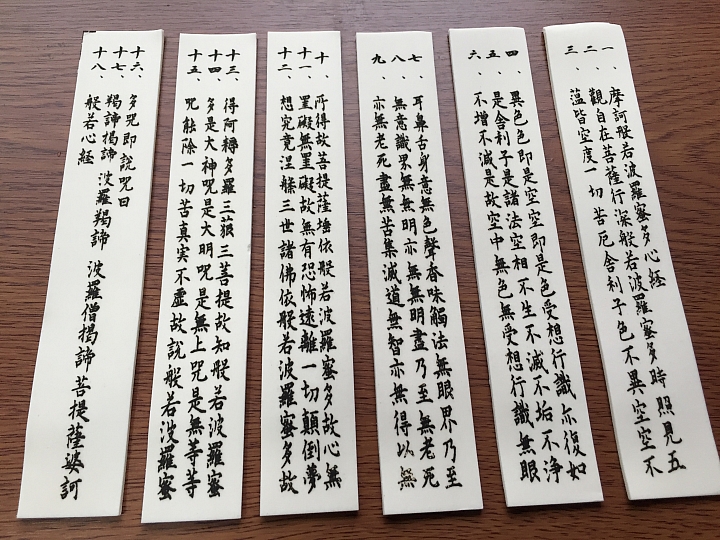 一、摩訶般若波羅蜜多心経
二、觀自在菩薩行深般若波羅蜜多時照見五
三、蘊皆空度一切苦厄舎利子色不異空空不
四、異色色即是空空即是色受想行識亦復如
五、是舎利子是諸法空相不生不滅不垢不浄
六、不增不減是故空中無色無受想行識無眼
七、耳鼻舌身意無色聲香味觸法無眼界乃至
八、無意識界無無明亦無無明盡乃至無老死
九、亦無老死盡無苦集滅道無智亦無得以無
十、所得故菩提薩埵依般若波羅蜜多故心無
十一、罣礙無罣礙故無有恐怖遠離一切顛倒夢
十二、想究竟涅槃三世諸佛依般若波羅蜜多故
十三、得阿耨多羅三藐三菩提故知般若波羅蜜
十四、多是大神呪是大明呪是無上呪是無等等
十五、呪能除一切苦真実不虚故説般若波羅蜜
十六、多呪即説呪曰
十七、羯諦揭諦 波羅羯諦 波羅僧揭諦 菩提薩婆訶
十八、般若心経